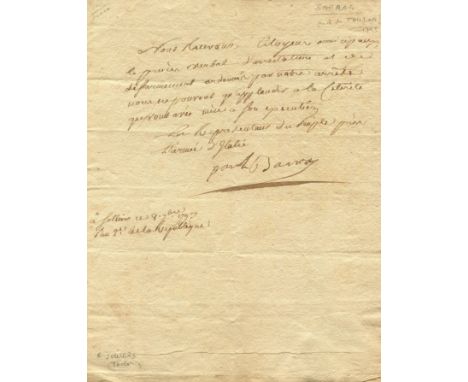 BARRAS
Nous Recevons, Citoyens
le procès verbal d'arrestation et de
désarmement ordonné par notre arrêté
nous ne pouvons qu'applaudir a la Célérité
que vous avez mise a son execution
Les Représentans du Peuple près
l'armée d'Italie
Barras
à Solliès ce 9
l'an 2e de la République